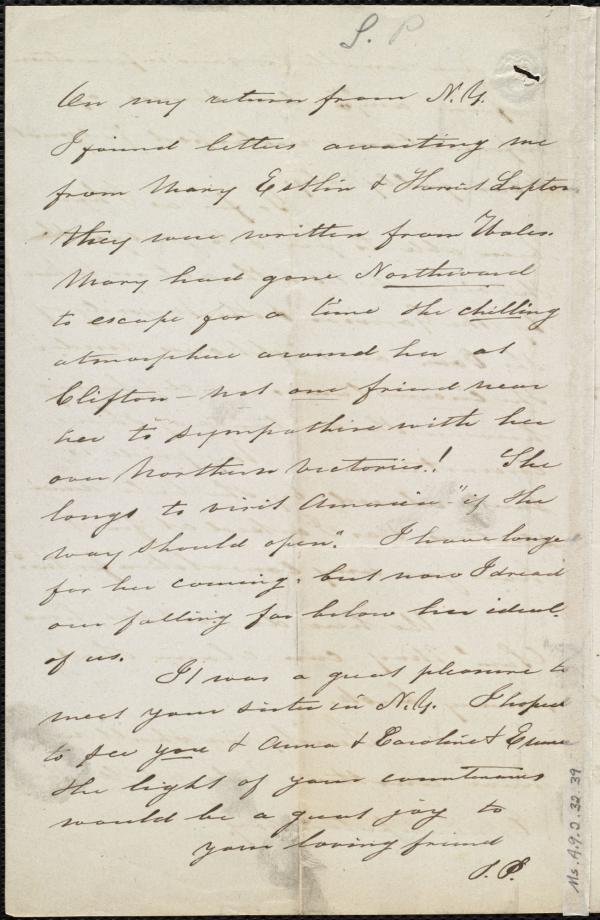 S. P
On my return from N.Y.
I found letters awaiting me
from Mary Estlin & Harriet Lupton
they were written from Wales.
Mary had gone Northward
to escape for a time the chilling
atmosphere around her at
Clifton – not one friend near
her to sympathise with her
over Northern victories! She
longs to visit America "if the
way should open". I have longed
for her coming, but now I dread
our falling far below her ideal
of us.
It was a great pleasure to
meet your sister in N.Y. I hoped
to see you & Anna & Caroline & Emma
the light of your countenances
would be a great joy to
your loving friend
S. P.
Ms. A.9.2.32.39